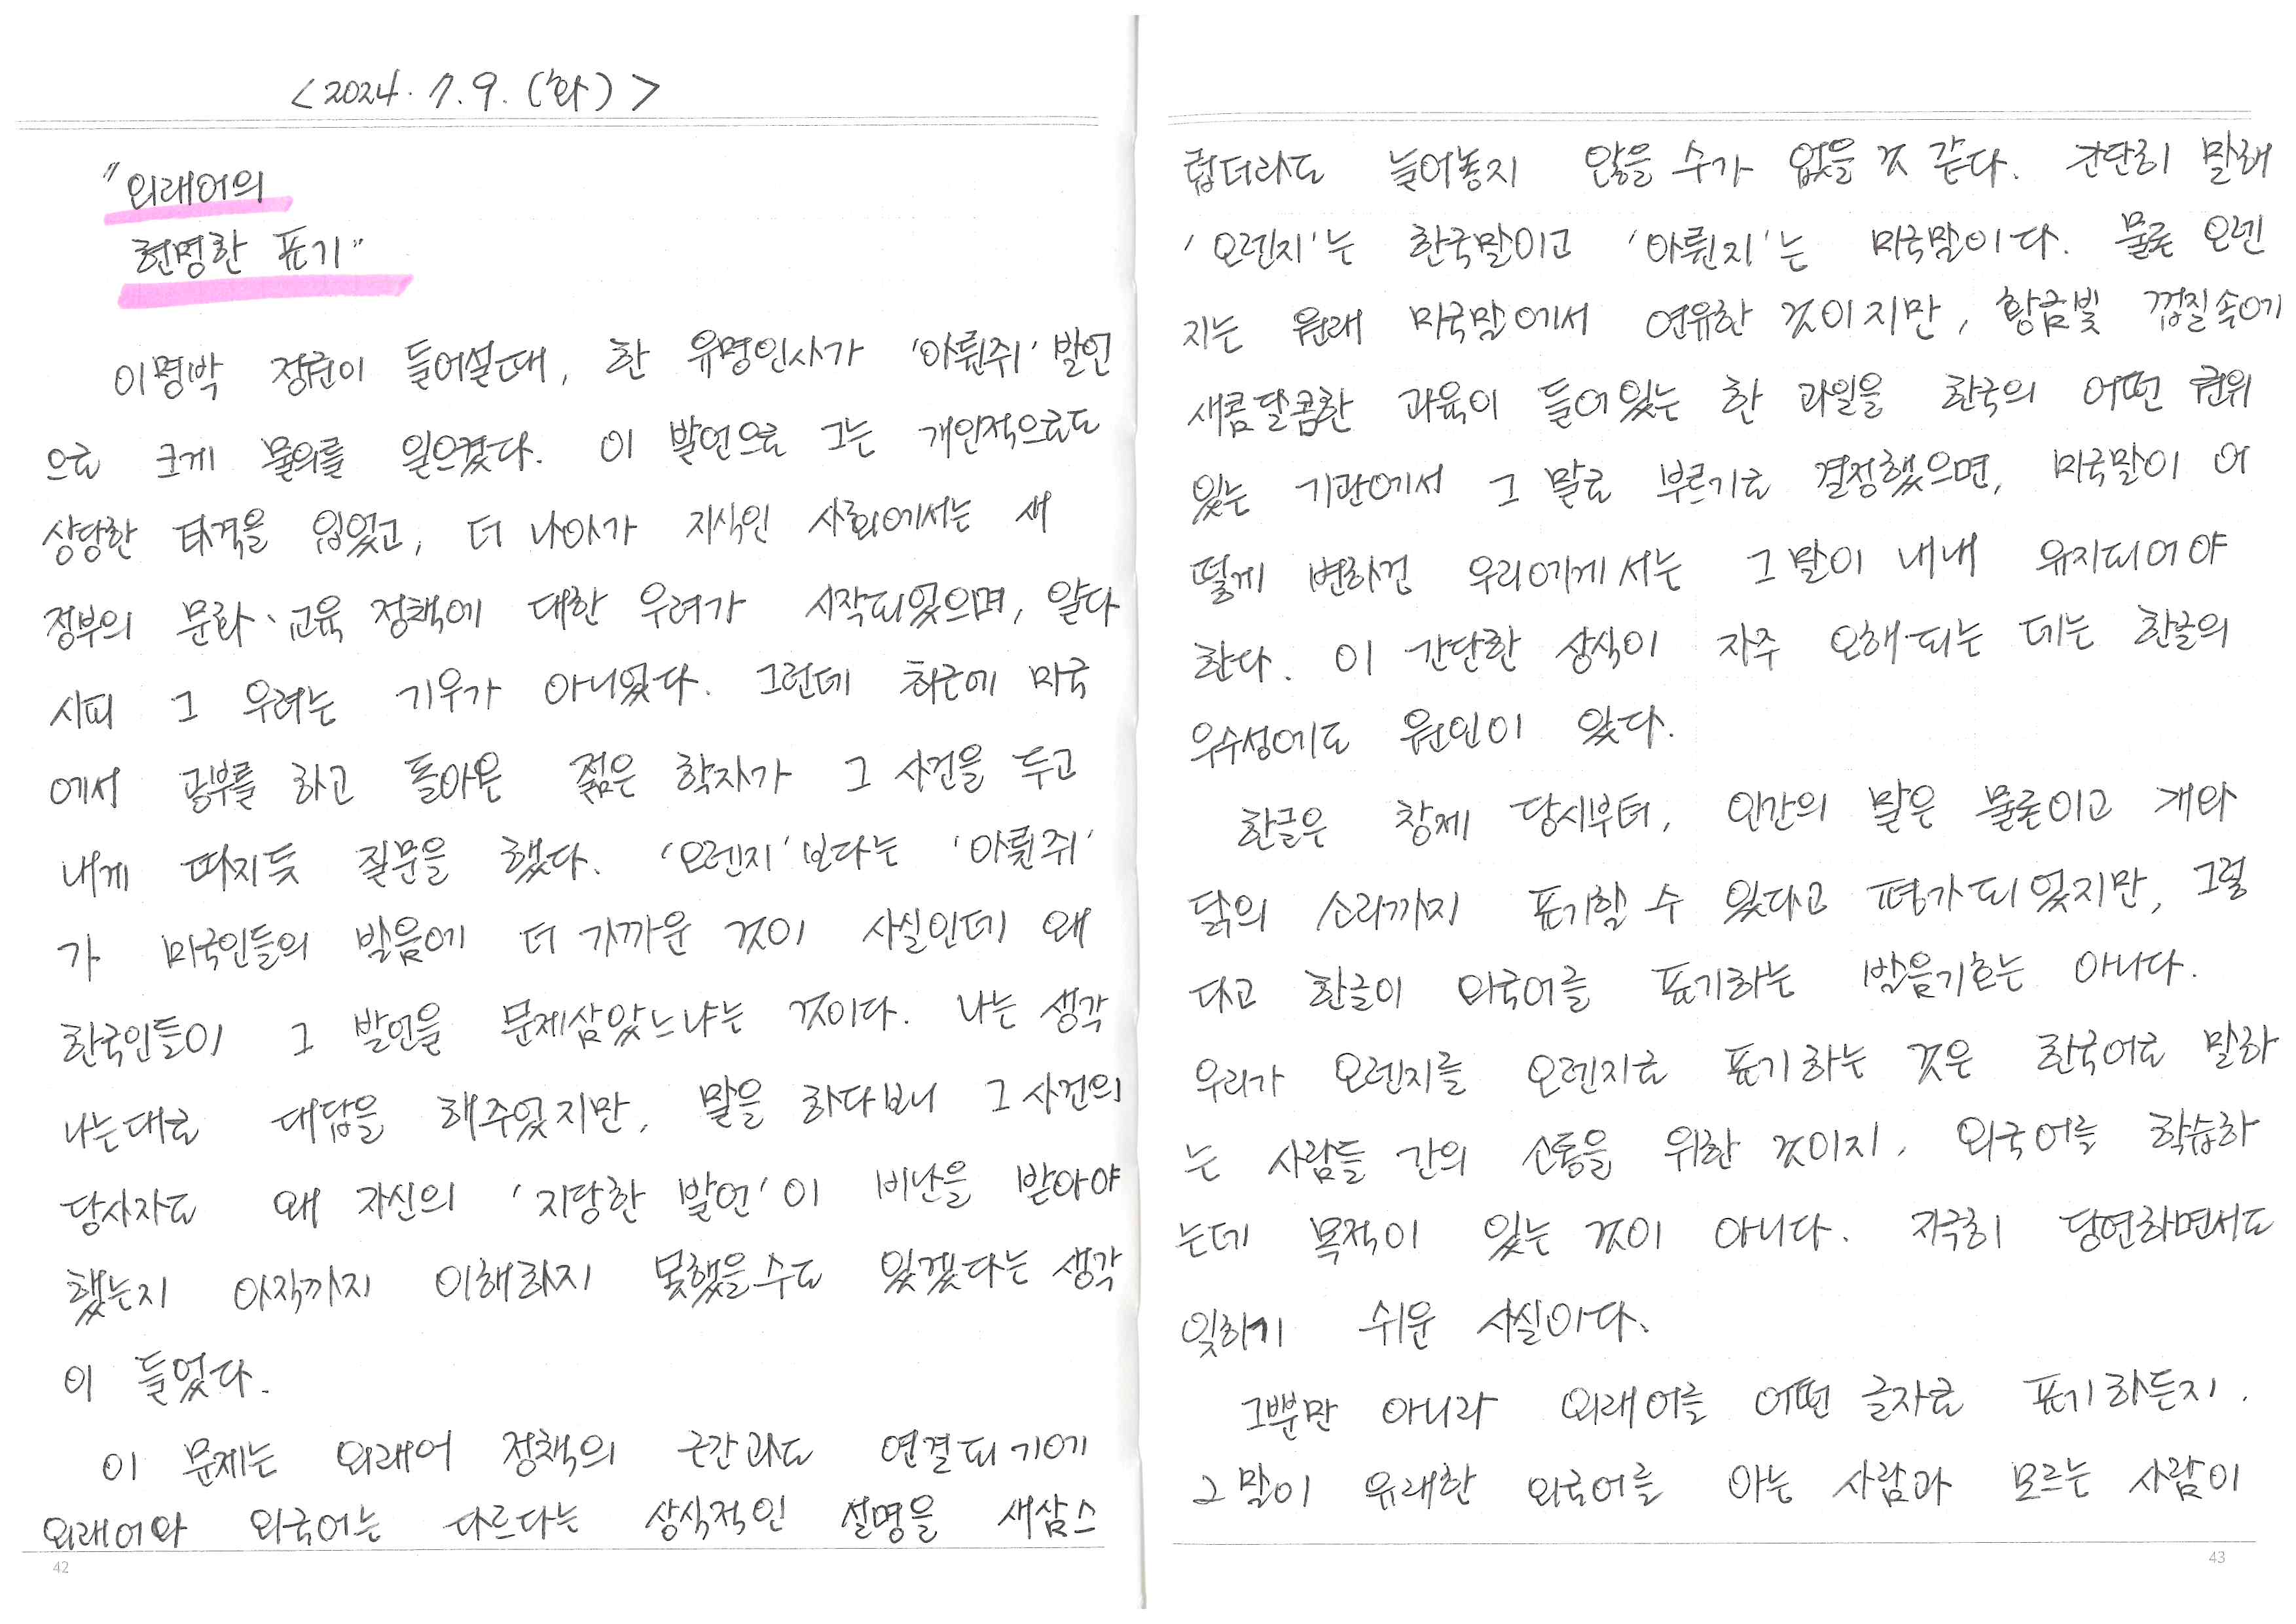 <2024. 7. 9. (화)>
"외래어의
현명한 표기"
이명박 정권이 들어설때, 한 유명인사가 '아륀쥐' 발언
으로 크게 물의를 일으켰다. 이 발언으로 그는 개인적으로도
상당한 타격을 입었고, 더 나아가 지식인 사회에서는 새
정부의 문화、교육 정책에 대한 우려가 시작되었으며, 알다
시피 그 우려는 기우가 아니었다. 그런데 최근에 미국
에서 공부를 하고 돌아온 젊은 학자가 그 사건을 두고
내게 따지듯 질문을 했다. '오렌지'보다는 '아륀쥐'
가 미국인들의 발음에 더 가까운 것이 사실인데 왜
한국인들이 그 발언을 문제삼았느냐는 것이다. 나는 생각
나는대로 대답을 해주었지만, 말을 하다보니 그 사건의
당사자도 왜 자신의 '지당한 발언'이 비난을 받아야
했는지 아직까지 이해하지 못했을수도 있겠다는 생각
이 들었다.
이 문제는 외래어 정책의 근간과도 연결되기에
외래어와 외국어는 다르다는 상식적인 설명을 새삼스
42
럽더라도 늘어놓지 않을 수가 없을 것 같다. 간단히 말해
'오렌지'는 한국말이고 '아륀지'는 미국말이다. 물론 오렌
지는 원래 미국말에서 연유한 것이지만, 황금빛 껍질속에
새콤달콤한 과육이 들어있는 한 과일을 한국의 어떤 권위
있는 기관에서 그 말로 부르기로 결정했으면, 미국말이 어
떻게 변하건 우리에게서는 그 말이 내내 유지되어야
한다. 이 간단한 상식이 자주 오해되는 데는 한글의
우수성에도 원인이 있다.
한글은 창제 당시부터, 인간의 말은 물론이고 개와
닭의 소리까지 표기할 수 있다고 평가되었지만, 그렇
다고 한글이 외국어를 표기하는 발음기호는 아니다.
우리가 오렌지를 오렌지로 표기하는 것은 한국어로 말하
는 사람들 간의 소통을 위한 것이지, 외국어를 학습하
는데 목적이 있는 것이 아니다. 지극히 당연하면서도
잊하기 쉬운 사실이다.
그뿐만 아니라 외래어를 어떤 글자로 표기하든지,
그말이 유래한 외국어를 아는 사람과 모르는 사람이
43